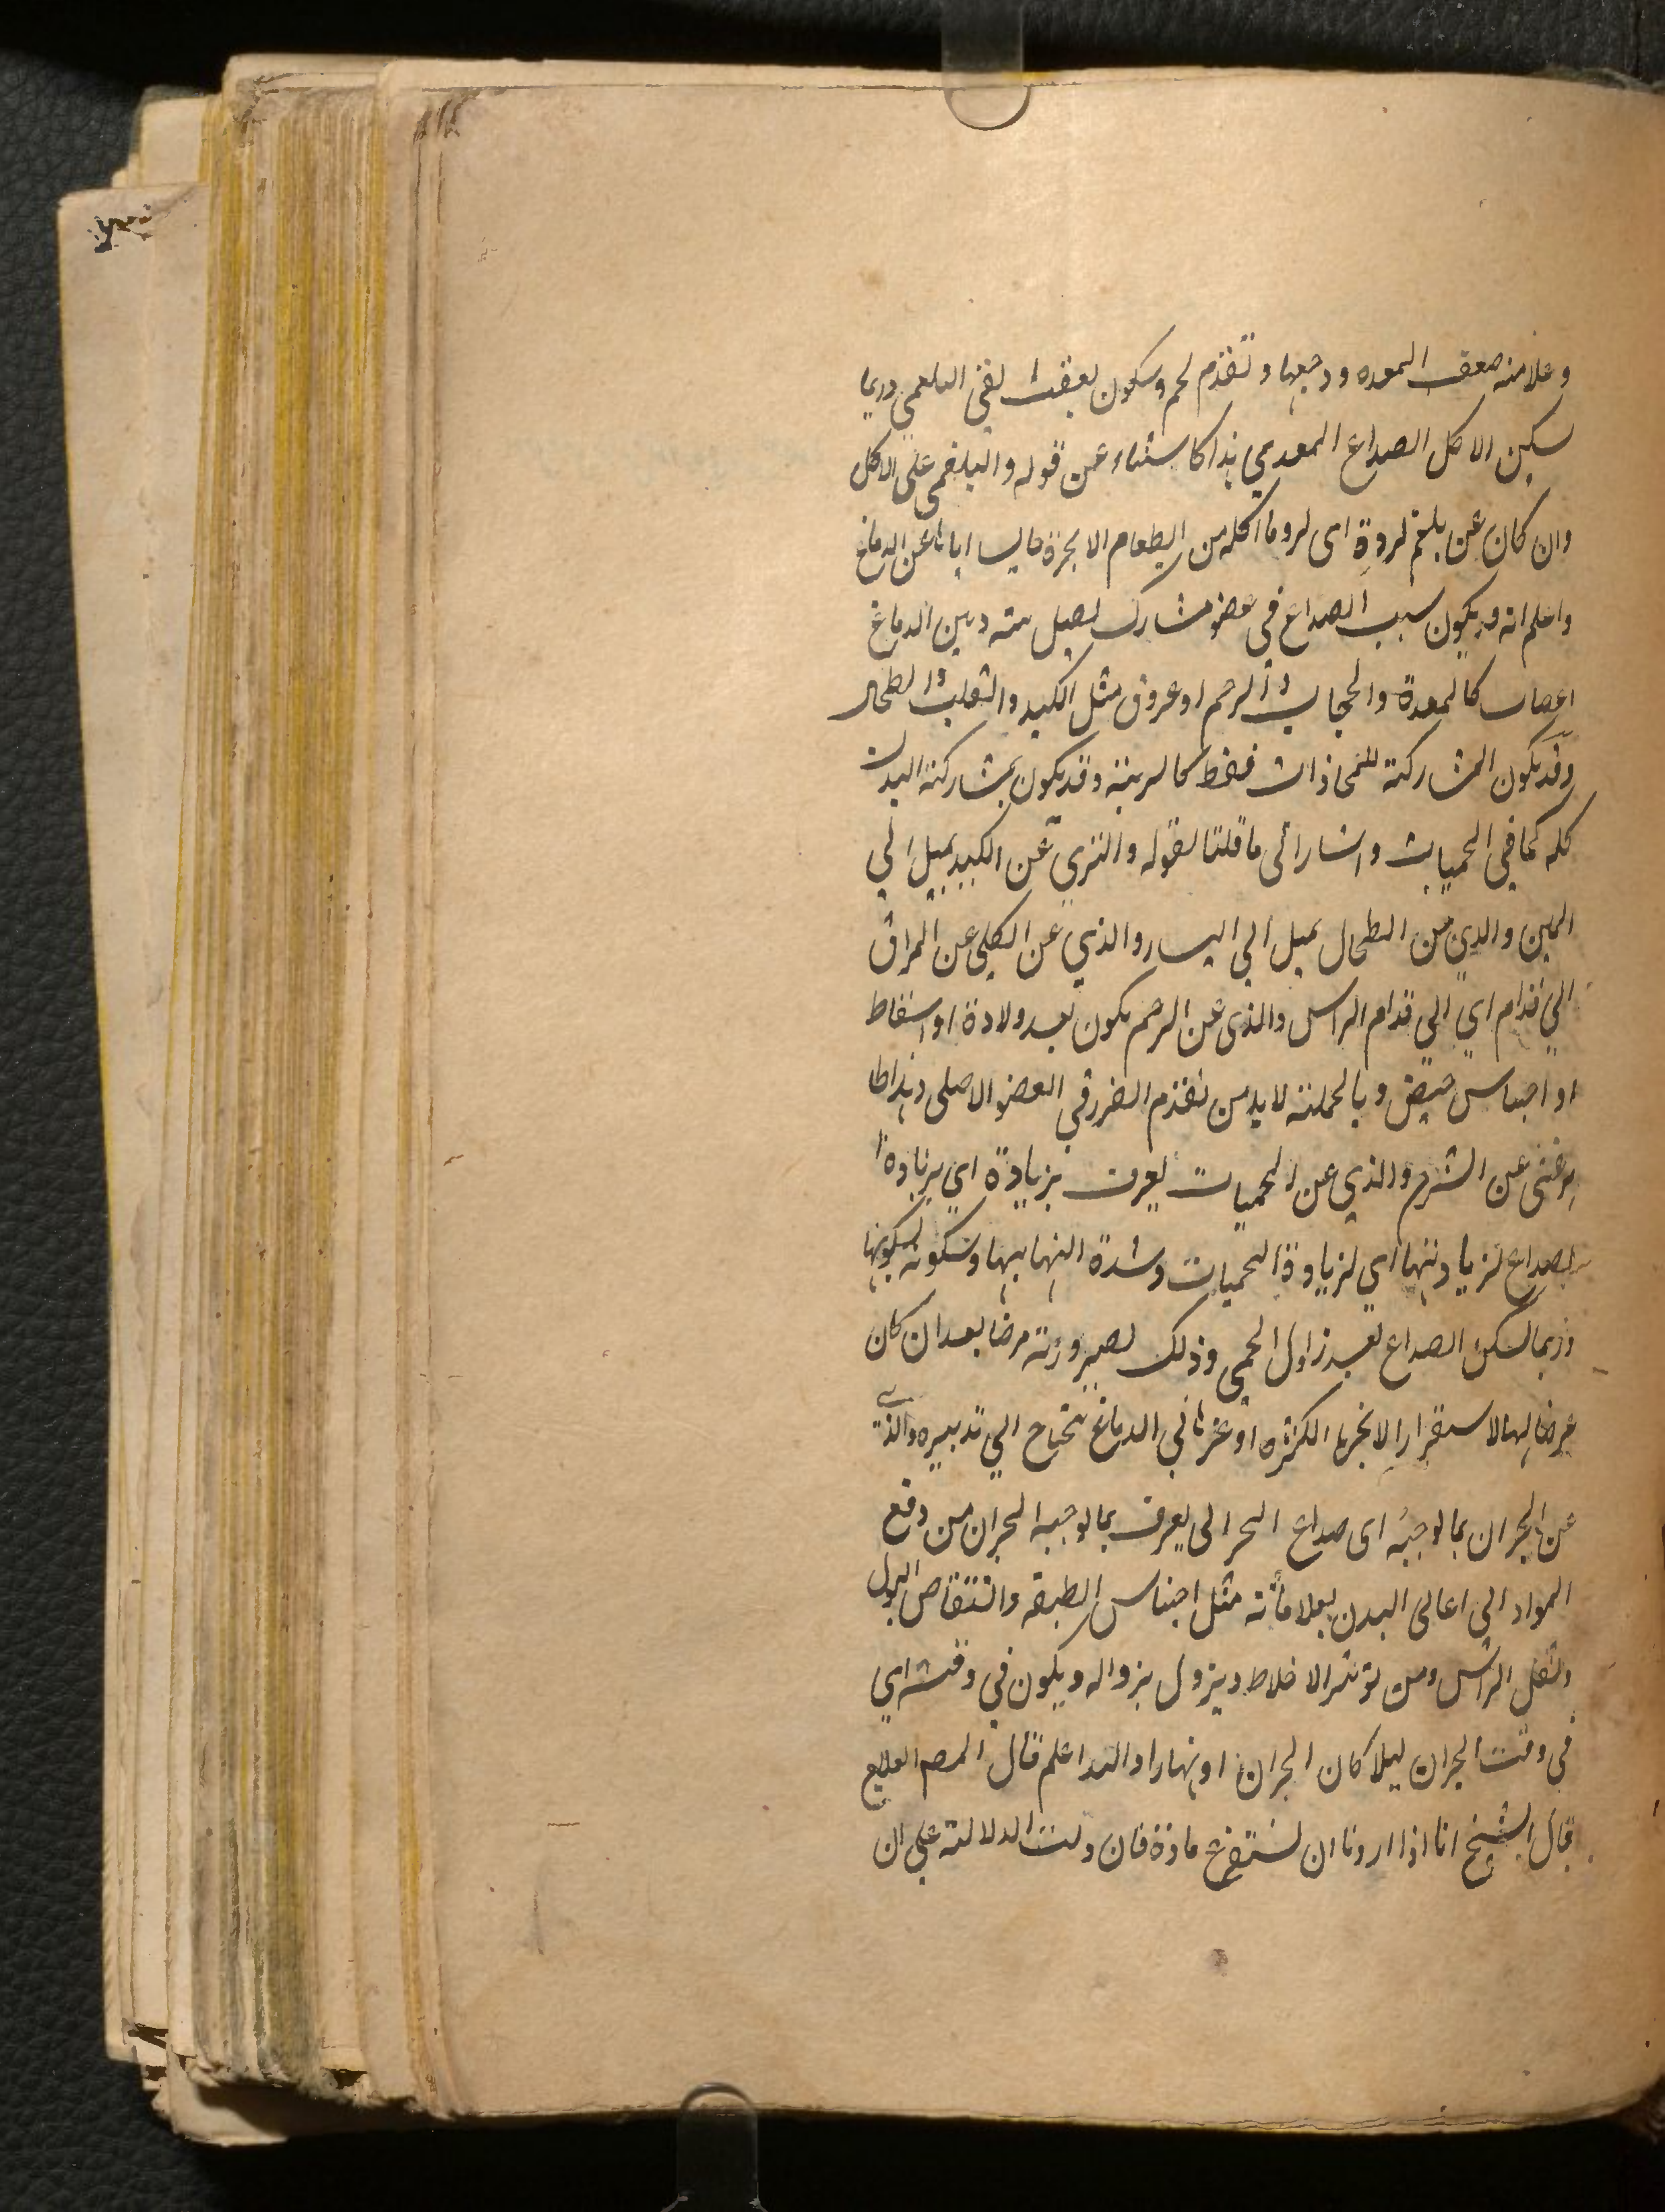 وعلامته ضعف المعده ووجعها وتقدم تخم وسكون بعقب القي البلغمي وربما
يسكن الاكل الصداع المعدي هذا كاستثناء عن قوله والبلغمي على الاكل
وان كان عن بلغم لردة اي لرد ما اكله من الطعام الابخرة حابسا اياها عن الدماغ
واعلم انه قد يكون سبب الصداع في عضو مشارك يصل بينه وبين الدماغ
اعصاب كالمعدة والحجاب والرحم او عروق مثل الكبد والقلب والطحال
وقد يكون المشاركة للمحاذات فقط كالرئة وقد يكون بمشاركة البدن
كله كما في الحميات واشار الى ما قلنا بقوله والذي عن الكبد يميل الي
اليمين والذي من الطحال يميل الي اليسار والذي عن الكلي عن المراق
الي قدام اي الي قدام الراس والذي عن الرحم يكون بعد ولادة او اسقاط
او احتباس حيض وبالجملة لا بد من تقدم الضرر في العضو الاصلي وهذا ظا
هر غني عن الشرح والذي عن الحميات يعرف بزيادة اي بزيادة ا
لصداع لزيادتها اي لزيادة الحميات وشدة التهابها وسكونه لسكونها
وربما لم يسكن الصداع بعد زوال الحمي وذلك لصيرورته مرضا بعد ان كان
عرضا لها لاستقرار الابخرة الكثيرة او غيرها في الدماغ يحتاج الي تدبيره والذي
عن البحران بما يوجبه اي صداع البحراني يعرف بما يوجبه البحران من دفع
المواد الى اعالى البدن بعلاماته مثل احتباس الطبيعة وانتقاص البول
وثقل الراس ومن توتر الاخلاط ويزول بزواله ويكون في وقته اي
في وقت البحران ليلا كان البحران او نهارا والله اعلم قال المص العلاج
قال الشيخ انا اذا اردنا ان نستفرغ مادة فان دلت الدلالة علي ان